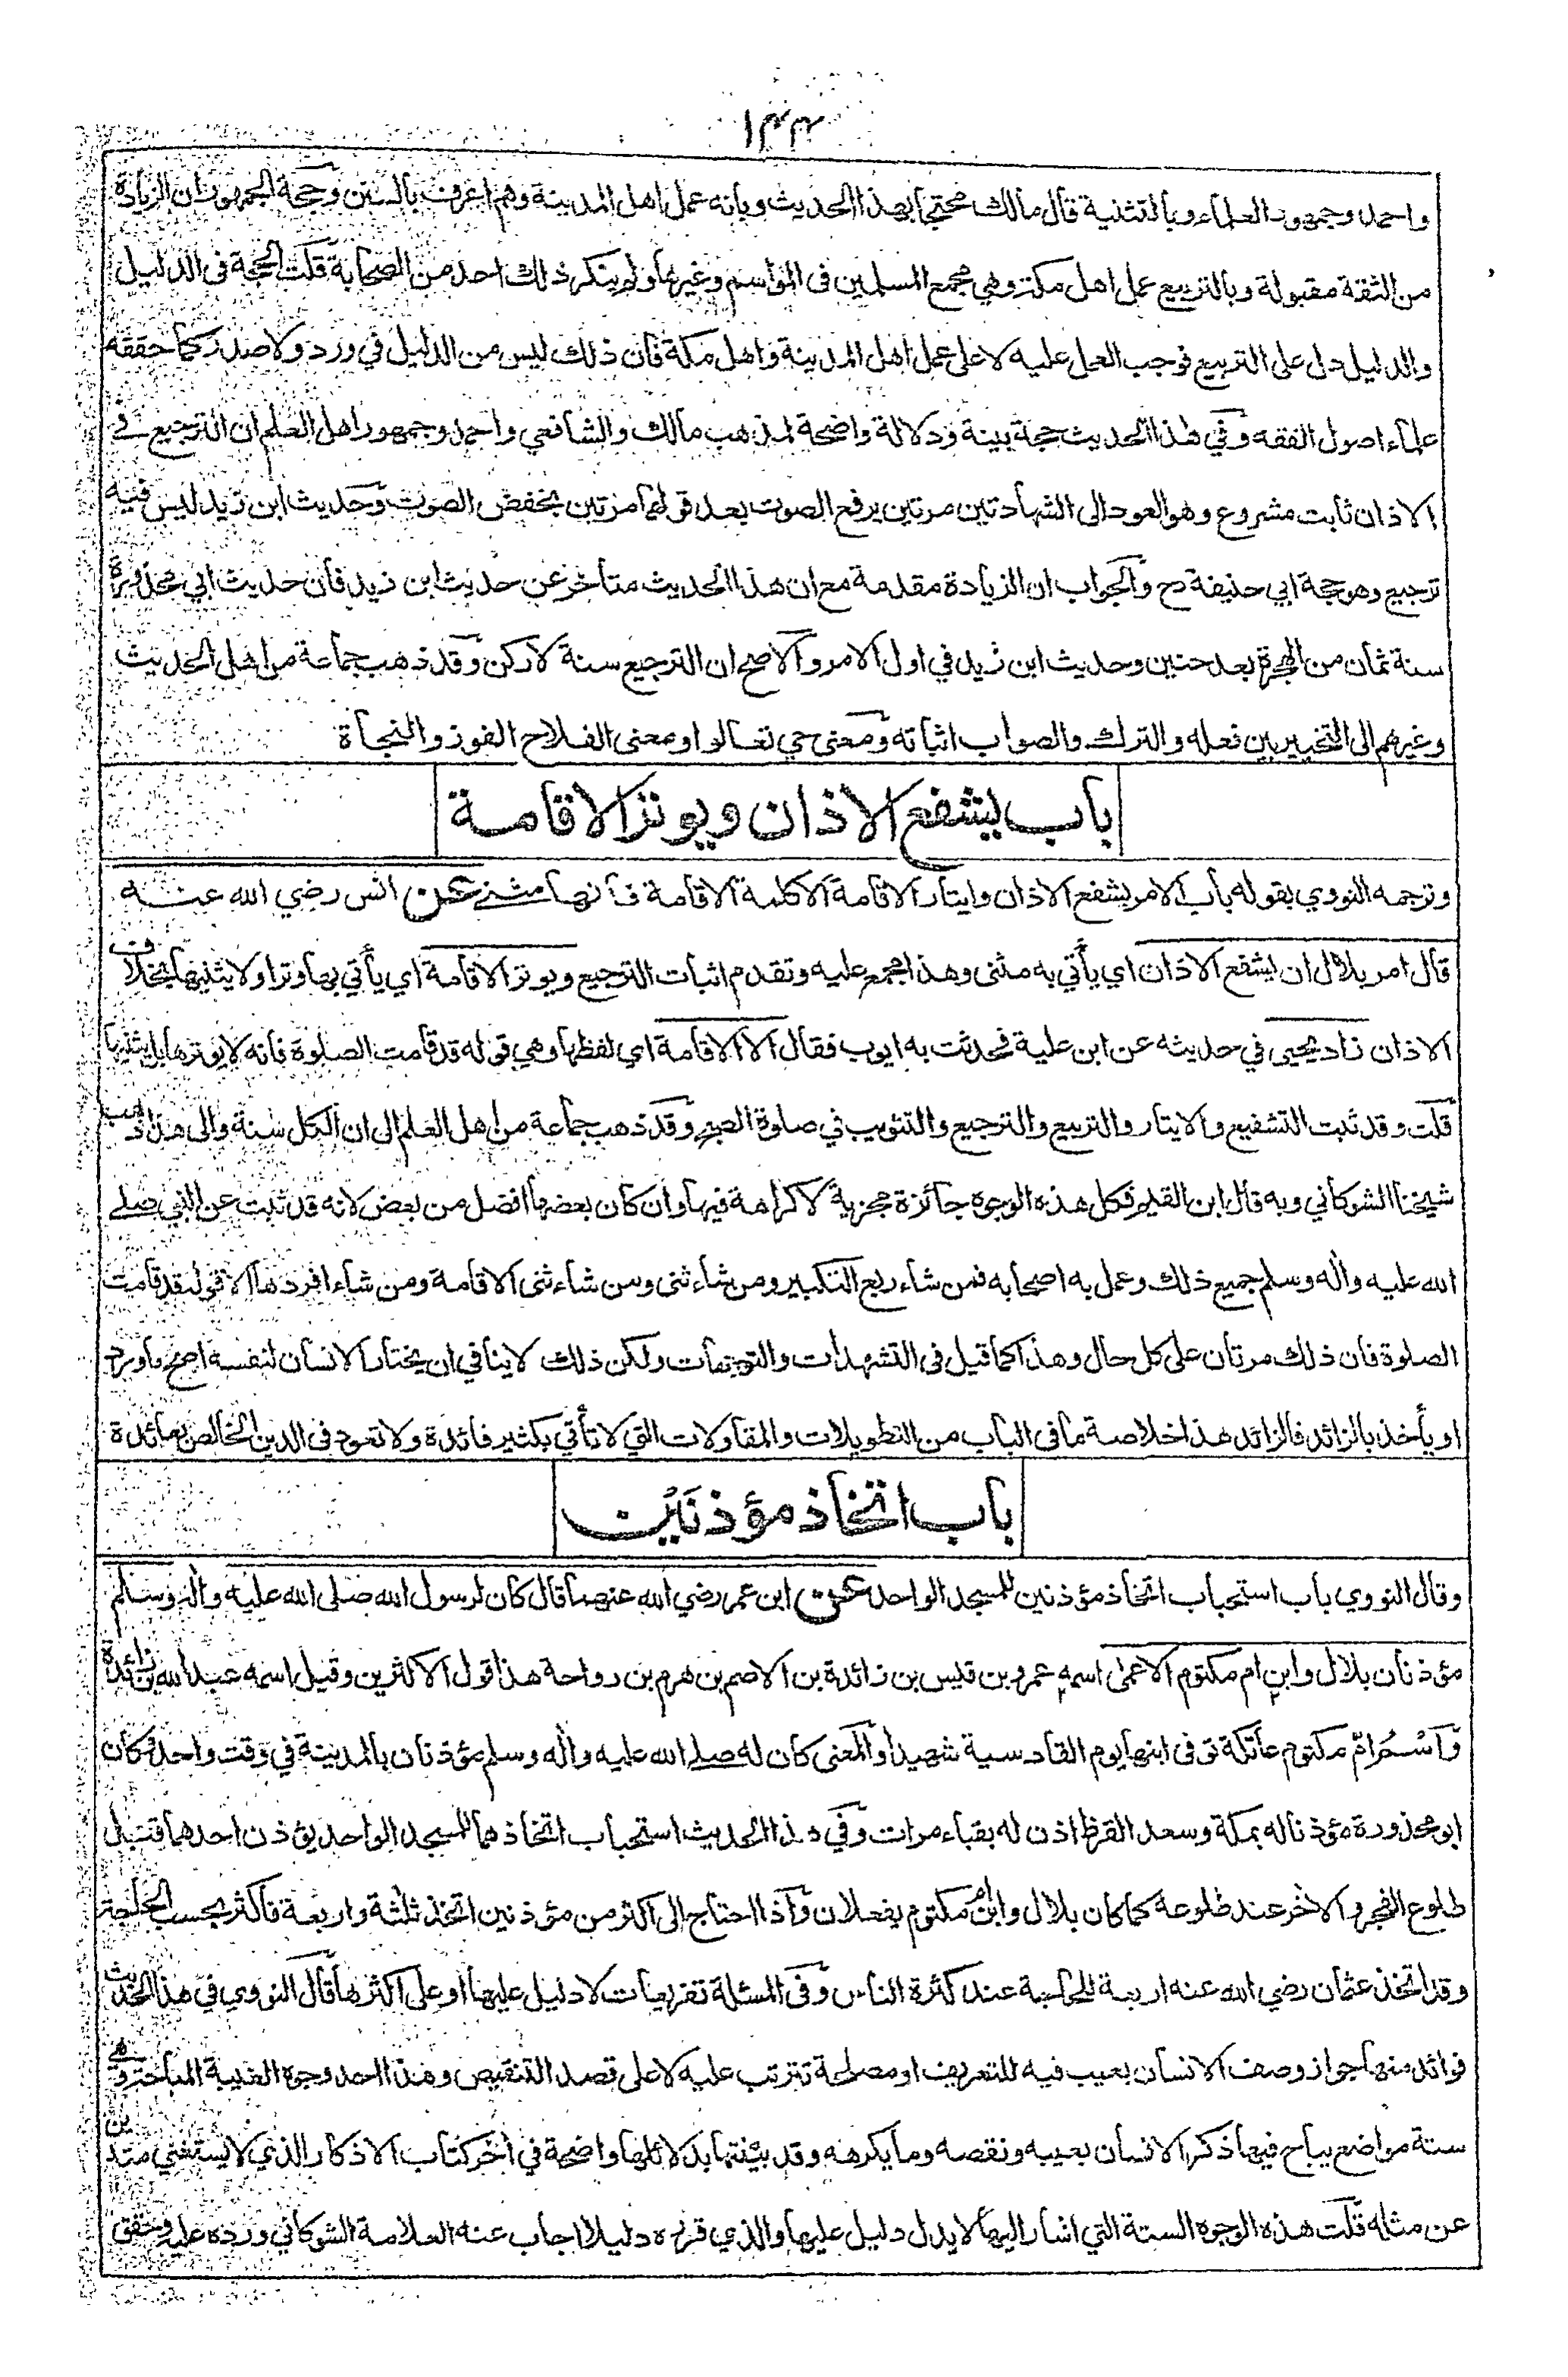 ١٤٤
واحمد وجمهور العلماء وبالتثنية قال مالك محتجا بهذا الحديث وبانه عمل اهل المدينة وهم اعرف بالسنن وحجة الجمهور ان الزيادة
من الثقة مقبولة وبالتربيع عمل اهل مكة وهي مجمع المسلمين فى المواسم وغيرها ولم ينكر ذلك احد من الصحابة قلت الحجة فى الدليل
والدليل دل على التربيع فوجب العمل عليه لا على عمل اهل المدينة واهل مكة فان ذلك ليس من الدليل في ورد ولا صدر كما حققه
علماء اصول الفقه وفي هذا الحديث حجة بينة ودلالة واضحة لمذهب مالك والشافعي واحمد وجمهور اهل العلم ان الترجيع في
الاذان ثابت مشروع وهو العود الى الشهادتين مرتين برفع الصوت بعد قولهما مرتين بخفض الصوت وحديث ابن زيد ليس فيه
ترجيع وهو حجة ابي حنيفة رح والجواب ان الزيادة مقدمة مع ان هذا الحديث متأخر عن حديث ابن زيد فان حديث ابي محذورة
سنة ثمان من الهجرة بعد حنين وحديث ابن زيد في اول الامر والاصح ان الترجيع سنة لا ركن وقد ذهب جماعة من اهل الحديث
وغيرهم الى التخيير بين فعله والترك والصواب اثباته ومعنى حي تعالوا ومعنى الفلاح الفوز والنجاة
باب يشفع الاذان ويوتر الاقامة
وترجمه النووي بقوله باب الامر بشفع الاذان وايتار الاقامة الا كلمة الاقامة فانها مثنى عن انس رضي الله عنه
قال امر بلال ان يشفع الاذان اي يأتي به مثنى وهذا مجمع عليه وتقدم اثبات الترجيع ويوتر الاقامة اي يأتي بها وترا ولا يثنيها بخلاف
الاذان زاد يحيى في حديثه عن ابن علية فحدثت به ايوب فقال الا الاقامة اي لفظها وهي قوله قد قامت الصلوة فانه لا يوترها بل يثنيها
قلت وقد ثبت التشفيع والايتار والتربيع والترجيع والتثويب في صلوة الصبح وقد ذهب جماعة من اهل العلم الى ان الكل سنة والى هذا ذهب
شيخنا الشوكاني وبه قال ابن القيم فكل هذه الوجوه جائزة مجزية لا كراهة فيها وان كان بعضها افضل من بعض لانه قد ثبت عن النبي صلى
الله عليه واله وسلم جميع ذلك وعمل به اصحابه فمن شاء ربع التكبير ومن شاء ثنى ومن شاء ثنى الاقامة ومن شاء افردها الا قوله قد قامت
الصلوة فان ذلك مرتان على كل حال وهذا كما قيل فى التشهدات والتوجهات ولكن ذلك لا ينافي ان يختار الانسان لنفسه اصح ما ورد
او يأخذ بالزائد فالزائد هذا خلاصة ما فى الباب من التطويلات والمقاولات التي لا تأتي بكثير فائدة ولا تعود فى الدين الخالص بعائدة
باب اتخاذ مؤذنَيْن
وقال النووي باب استحباب اتخاذ مؤذنين للمسجد الواحد عن ابن عمر رضي الله عنهما قال كان لرسول الله صلى الله عليه واله وسلم
مؤذنان بلال وابن ام مكتوم الاعمى اسمه عمرو بن قيس بن زائدة بن الاصم بن هرم بن رواحة هذا قول الاكثرين وقيل اسمه عبد الله بن زائدة
واسم امّ مكتوم عاتكة توفى ابنها يوم القادسية شهيدا والمعنى كان له صلى الله عليه واله وسلم مؤذنان بالمدينة في وقت واحد وكان
ابو محذورة مؤذنا له بمكة وسعد القرظ اذن له بقباء مرات وفي هذا الحديث استحباب اتخاذهما للمسجد الواحد يؤذن احدهما قبل
طلوع الفجر والاخر عند طلوعه كما كان بلال وابن ام مكتوم يفعلان واذا احتاج الى اكثر من مؤذنين اتخذ ثلثة واربعة فاكثر بحسب الحاجة
وقد اتخذ عثمان رضي الله عنه اربعة للحاجة عند كثرة الناس وفى المسئلة تفريعات لا دليل عليها او على اكثرها قال النووي في هذا الحديث
فوائد منها جواز وصف الانسان بعيب فيه للتعريف او مصلحة تترتب عليه لا على قصد التنقيص وهذا احد وجوه الغيبة المباحة وهي
ستة مواضع يباح فيها ذكر الانسان بعيبه ونقصه وما يكرهه وقد بيّنتها بدلائلها واضحة في اخر كتاب الاذكار الذي لا يستغني متدين
عن مثله قلت هذه الوجوه الستة التي اشار اليها لا يدل دليل عليها والذي قرره دليلا اجاب عنه العلامة الشوكاني ورده عليه وحقق